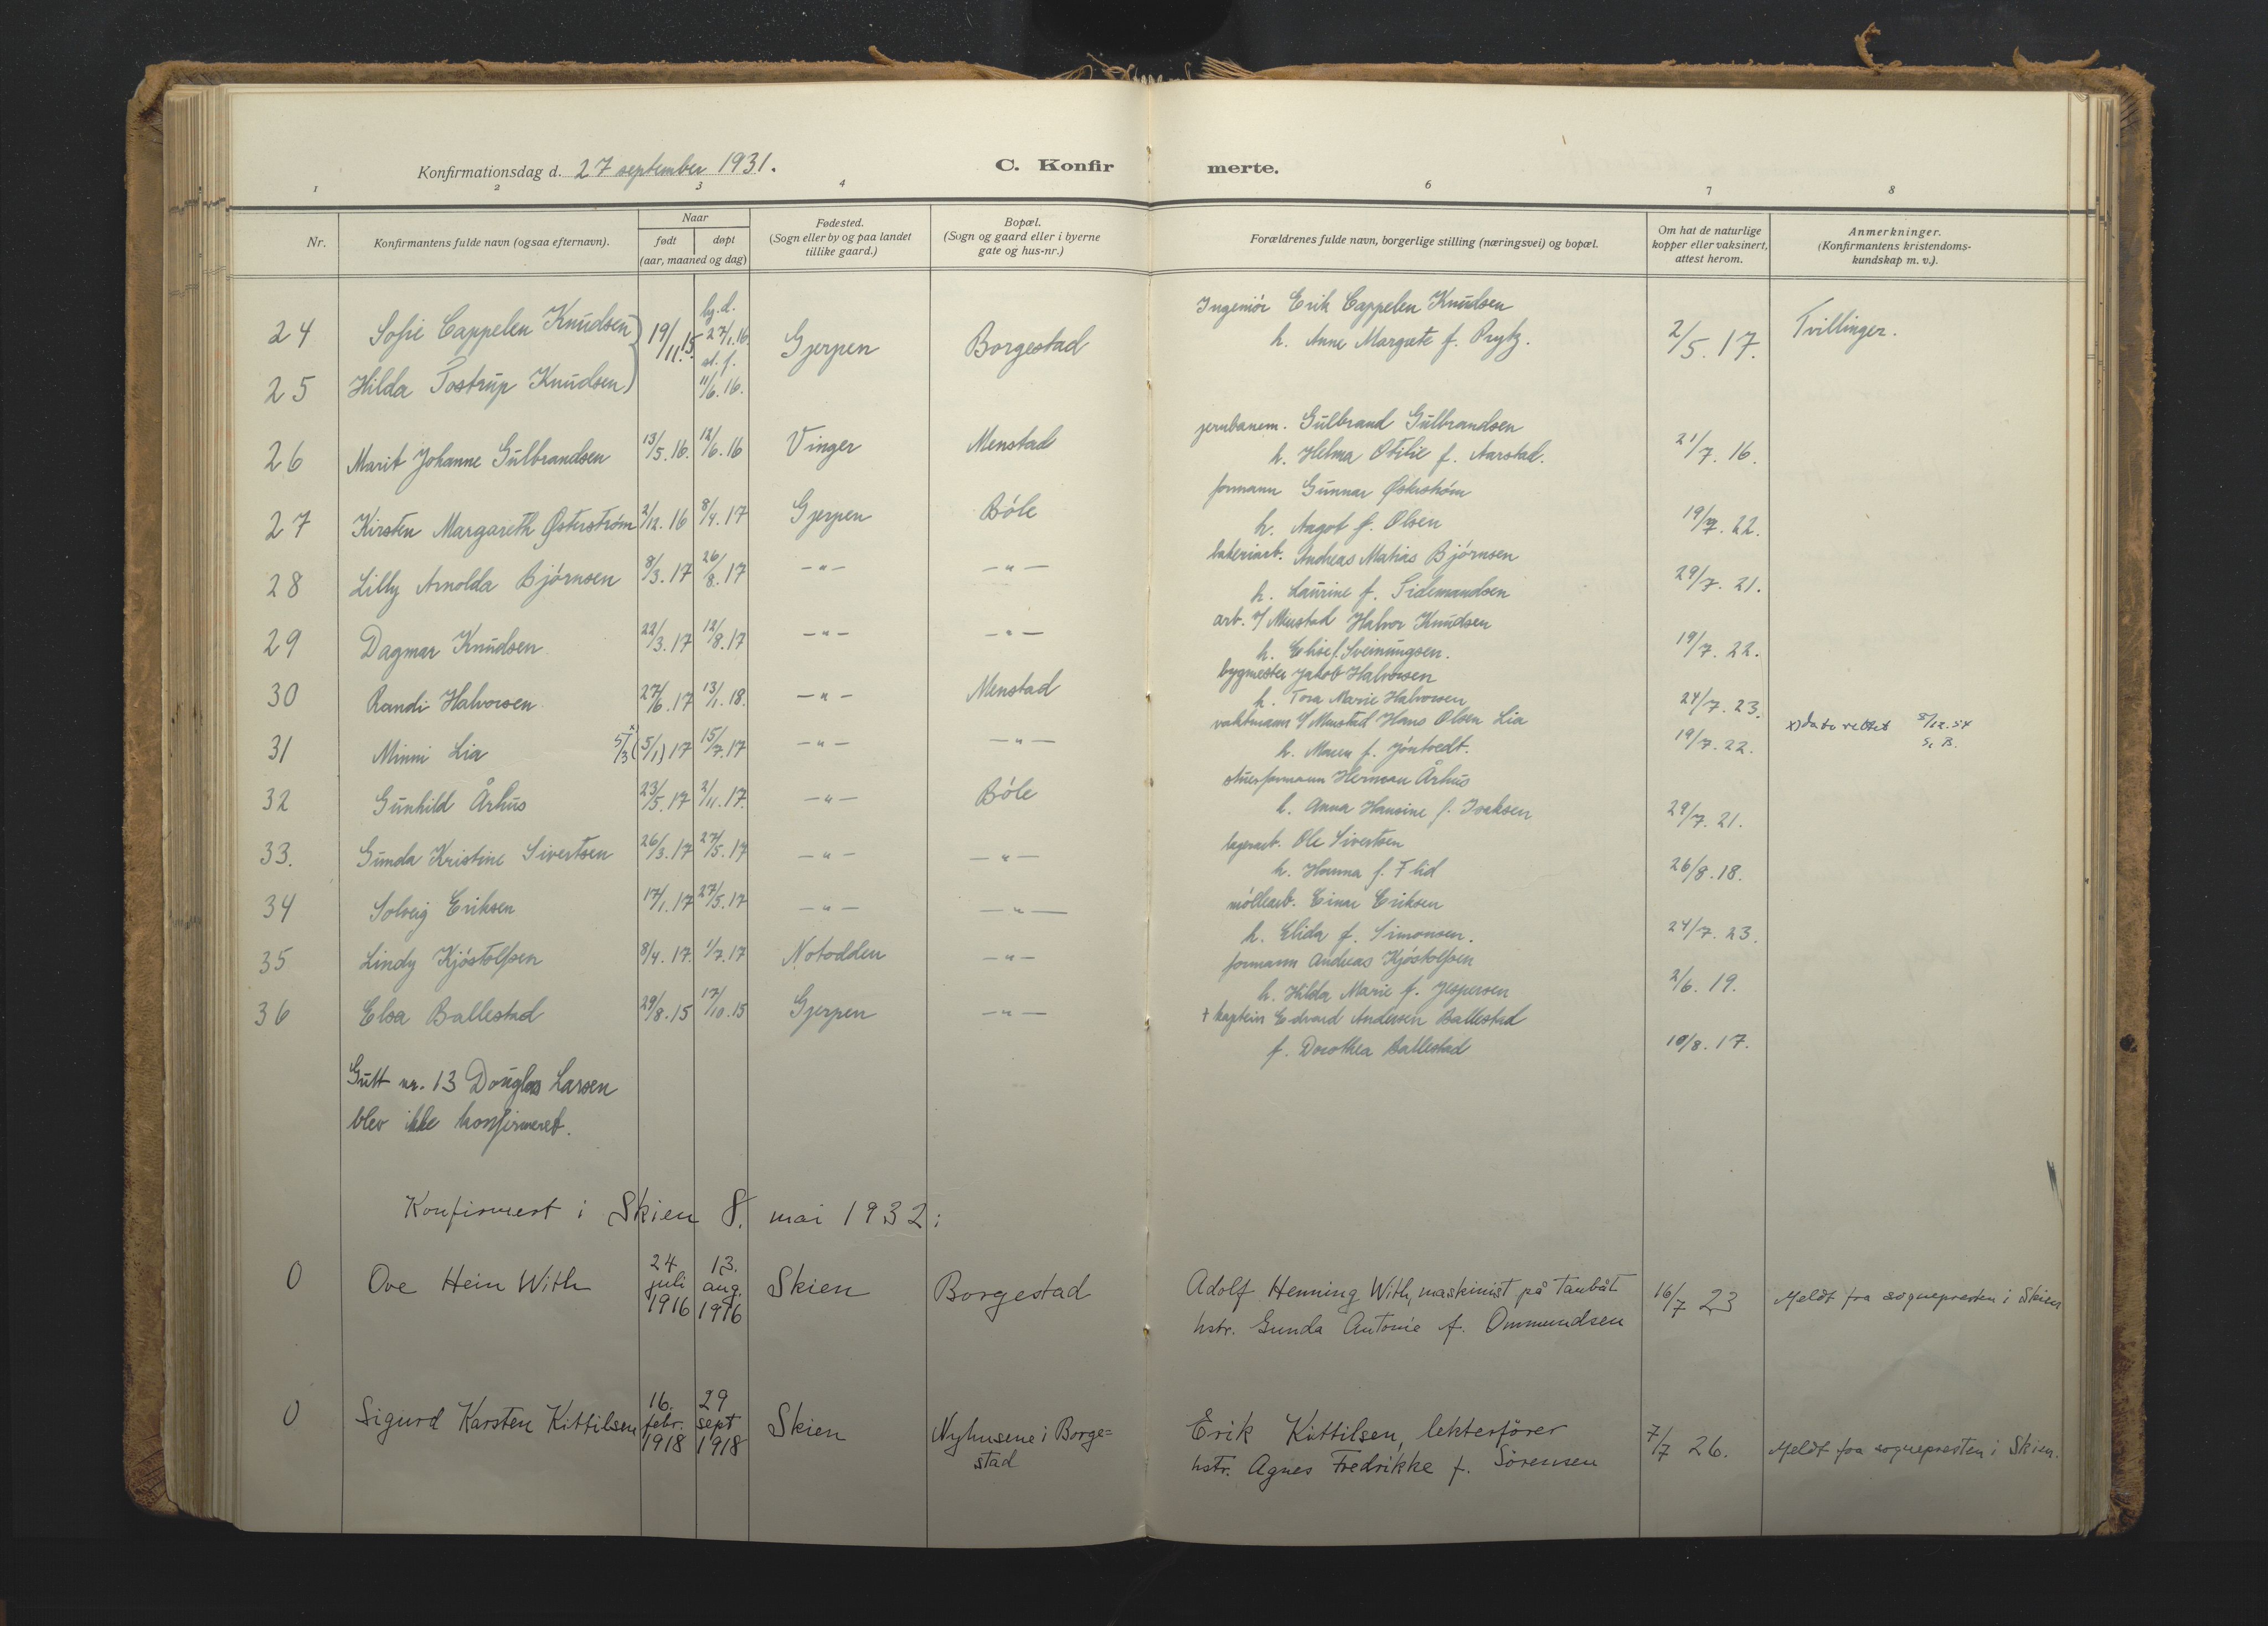 Konfirmationsdag d. 27 september 1931.
C. Konfirmerte.
1 2 3 4 6 7 8
Nr.
Konfirmantens fulde navn (ogsaa efternavn).
Naar
født døpt
(aar, maaned og dag)
Fødested.
(Sogn eller by og paa landet
tillike gaard.)
Bopæl.
(Sogn og gaard eller i byerne
gate og hus-nr.)
Forældrenes fulde navn, borgerlige stilling (næringsvei) og bopæl.
Om hat de naturlige
kopper eller vaksinert,
attest herom.
Anmerkninger.
(Konfirmantens kristendoms-
kundskap m. v.).
24 Sofie Cappelen Knudsen) 19/11.15. hj.d. 27/1.16. st. f. Gjerpen Borgestad Ingeniør Erik Cappelen Knudsen
h. Anne Margrete f. Prytz. 2/5.17. Tvillinger.
25 Hilda Tostrup Knudsen) 11/6.16.
26 Marit Johanne Gulbrandsen 13/5.16. 12/6.16 Vinger Menstad jernbanem. Gulbrand Gulbrandsen
h. Helma Otilie f. Aarstad. 21/7.16.
27 Kirsten Margareth Østerstrøm 2/12.16 8/4.17 Gjerpen Bøle formann Gunnar Østerstrøm
h. Aagot f. Olsen 19/7.22.
28 Lilly Arnolda Bjørnsen 8/3.17 26/8.17 -"- -"- bakeriarb. Andreas Matias Bjørnsen
h. Laurine f. Sidemandsen 29/7.21.
29 Dagmar Knudsen 22/3.17 12/8.17 -"- -"- arb. v/ Menstad Halvor Knudsen
h. Elise f. Sveinungsen. 19/7.22.
30 Randi Halvorsen 27/6.17 13/1.18. -"- Menstad bygmester Jakob Halvorsen
h. Tora Marie Halvorsen 24/7.23.
31 Minni Lia x 5/3 (5/1) 17 15/7.17 -"- -"- vaktmann v/ Menstad Hans Olsen Lia
h. Maren f. Jøntvedt. 19/7.22. x) dato rettet 5/12.54
S. B.
32 Gunhild Århus 23/5.17 2/11.17. -"- Bøle stuerformann Herman Århus
h. Anna Hansine f. Isaksen 29/7.21.
33. Gunda Kristine Sivertsen 26/3.17 27/5.17 -"- -"- lagerarb. Ole Sivertsen
h. Hanna f. Flid 26/8.18.
34 Solveig Eriksen 17/1.17 27/5.17 -"- -"- møllearb. Einar Eriksen
h. Elida f. Simonsen. 24/7.23.
35 Lindy Kjøstolfsen 8/4.17. 1/7.17 Notodden -"- formann Andreas Kjøstolfsen
h. Hilda Marie f. Jespersen 2/6.19.
36 Elsa Ballestad 29/8.15 17/10.15 Gjerpen -"- + kaptein Edvard Andersen Ballestad
f. Dorothea Ballestad 10/8.17.
Gutt nr. 13 Douglas Larsen
blev ikke konfirmeret.
Konfirmert i Skien 8. mai 1932:
0 Ove Hein With 24 juli 1916 13. aug. 1916 Skien Borgestad Adolf Henning With, maskinist på taubåt
hstr. Gunda Antonie f. Ommundsen 16/7 23 Meldt fra sognepresten i Skien
0 Sigurd Karsten Kittilsen 16. febr. 1918 29 sept 1918 Skien Nyhusene i Borge=
stad Erik Kittilsen, lekterfører
hstr. Agnes Fredrikke f. Sørensen 7/7 26. Meldt fra sognepresten i Skien.